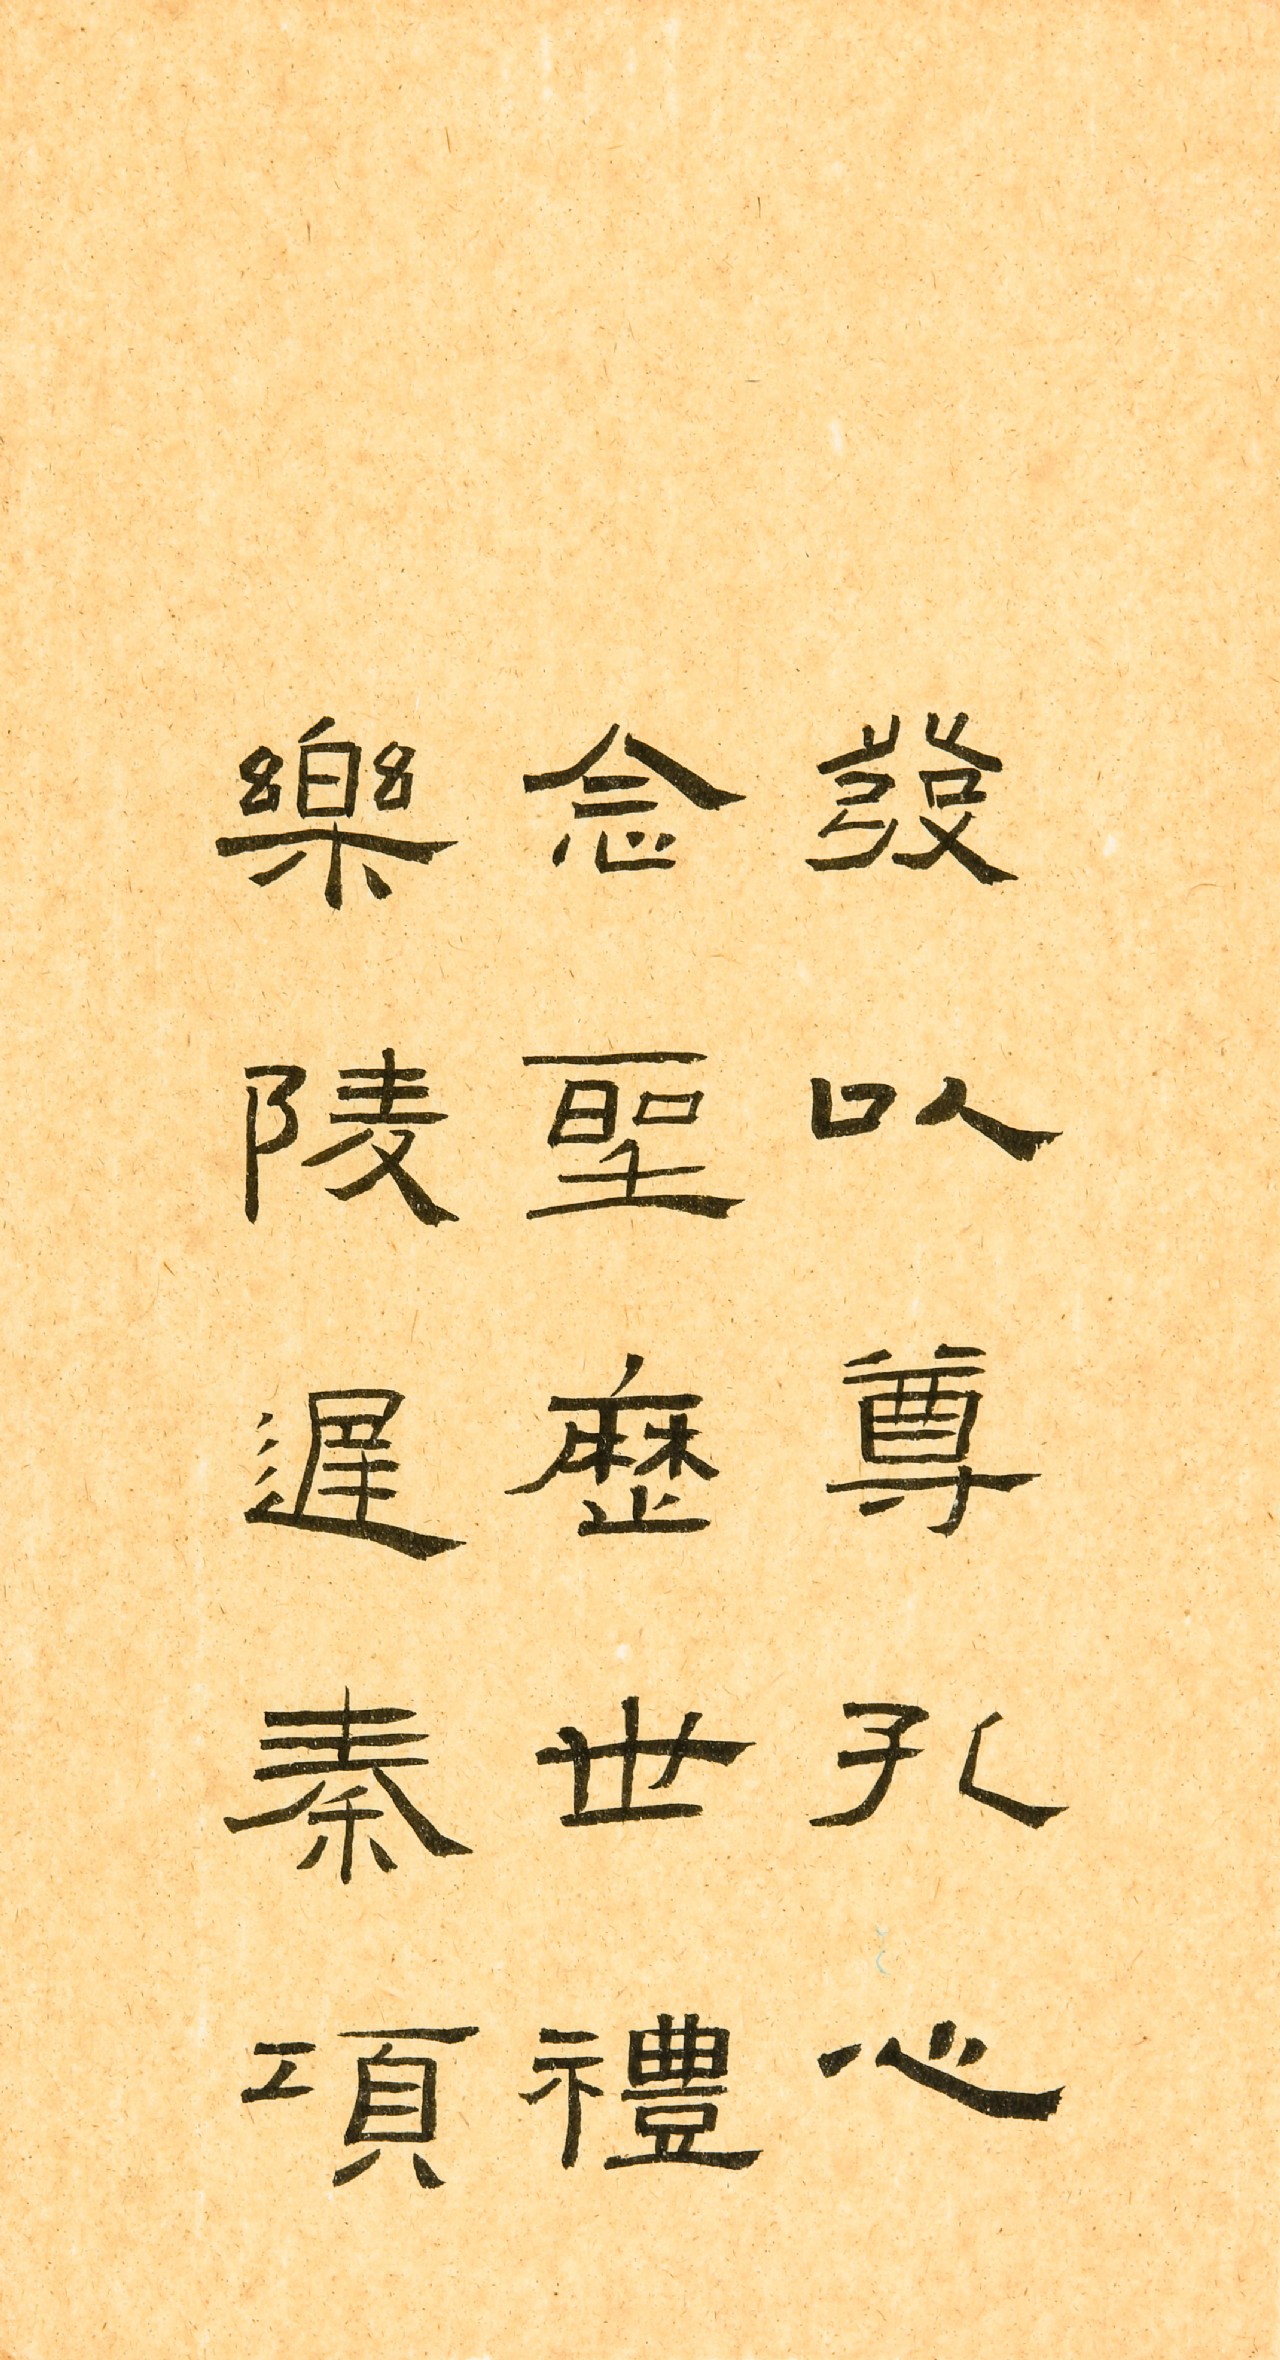 發以尊孔心
念聖歷世禮
樂陵遲秦項